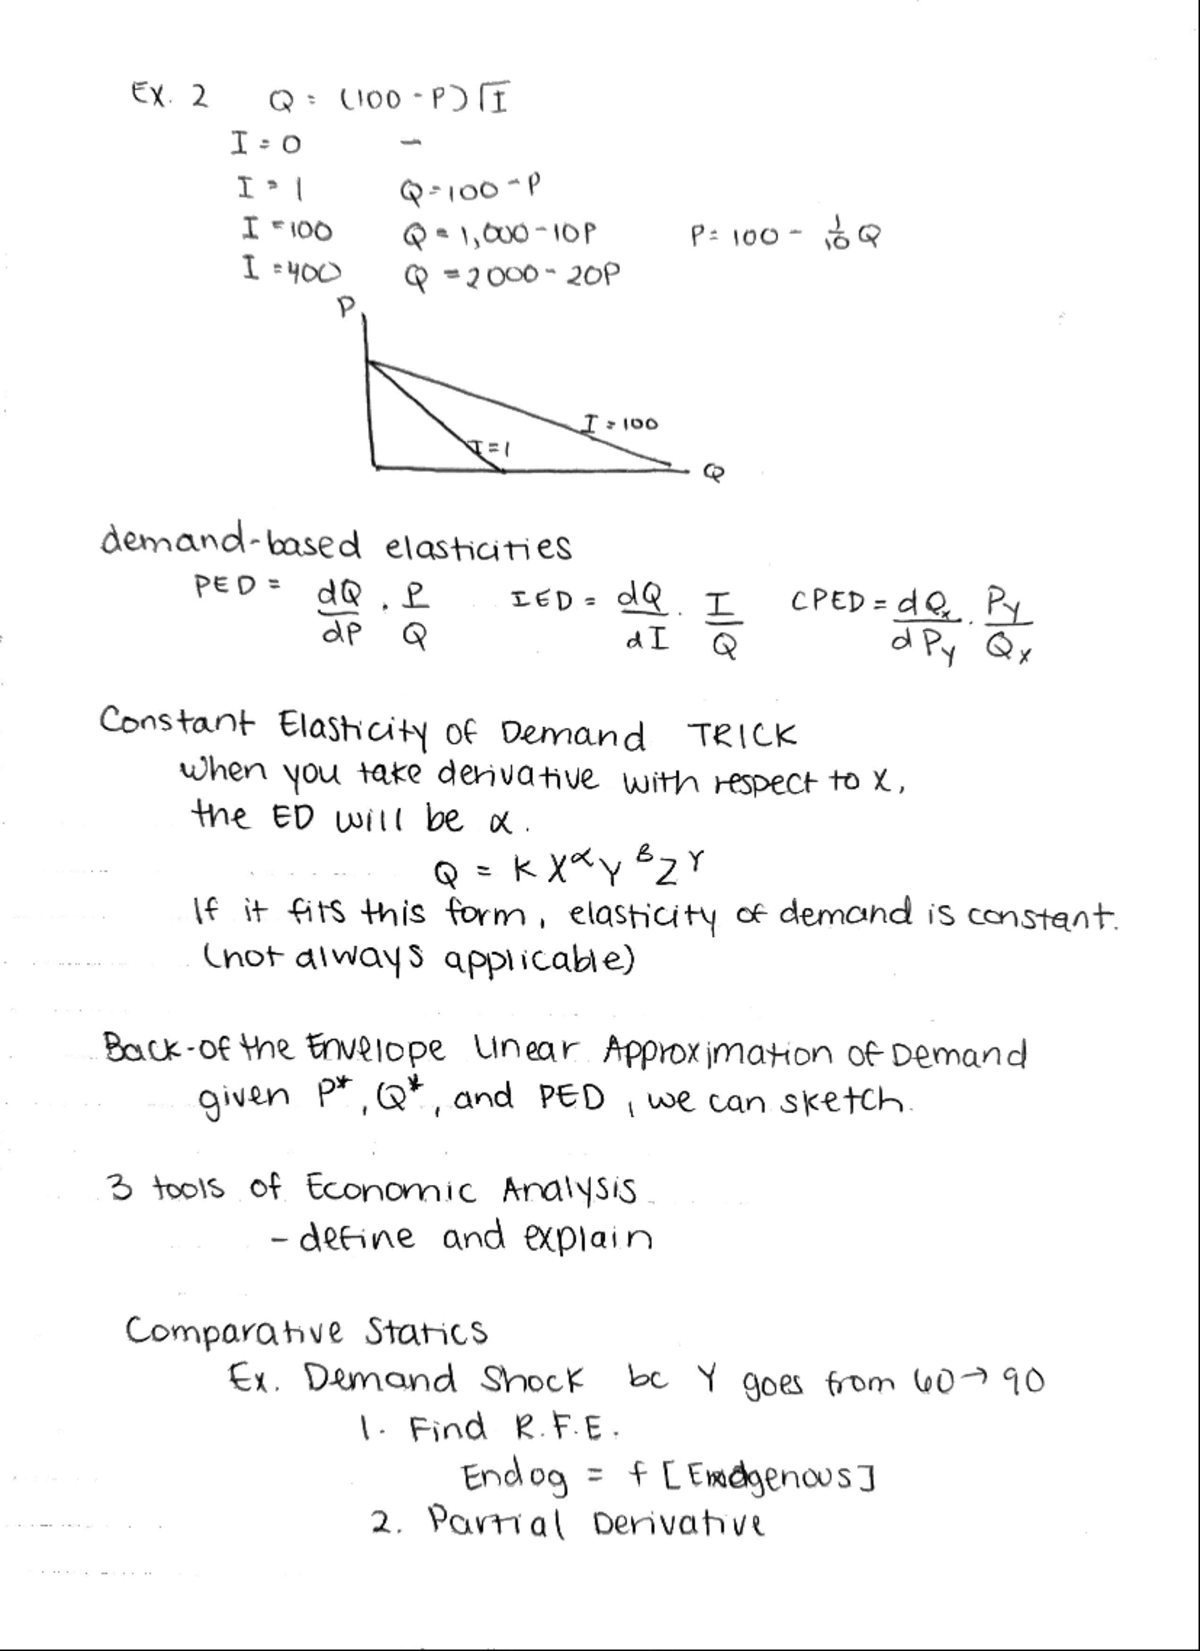 Ex. 2 Q = (100 - P)√I
I = 0 —
I = 1 Q = 100 - P
I = 100 Q = 1,000 - 10P P = 100 - 1/10 Q
I = 400 Q = 2000 - 20P
P
I = 100
I = 1
Q
demand-based elasticities
PED = dQ/dP · P/Q IED = dQ/dI · I/Q CPED = dQx/dPy · Py/Qx
Constant Elasticity of Demand TRICK
when you take derivative with respect to X,
the ED will be α.
Q = K X^α Y^β Z^γ
If it fits this form, elasticity of demand is constant.
(not always applicable)
Back-of the Envelope Linear Approximation of Demand
given P*, Q*, and PED, we can sketch.
3 tools of Economic Analysis
- define and explain
Comparative Statics
Ex. Demand Shock bc Y goes from 60 → 90
1. Find R.F.E.
Endog = f [Exogenous]
2. Partial Derivative